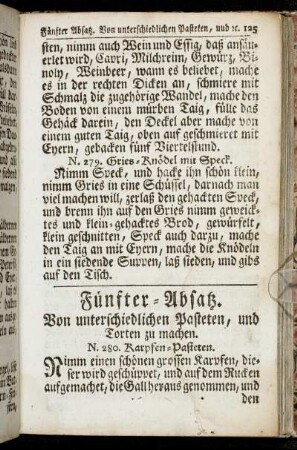 Fünfter Absatz. Von unterschiedlichen Pasteten, und ꝛc. 125
sten, nimm auch Wein und Essig, daß ansäu-
erlet wird, Cavri, Milchreim, Gewürz, Bi-
noly, Weinbeer, wann es beliebet, mache
es in der rechten Dicken an, schmiere mit
Schmalz die zugehörige Wandel, mache den
Boden von einem mürben Taig, fülle das
Gehäck darein, den Deckel aber mache von
einem guten Taig, oben auf geschmieret mit
Eyern, gebacken fünf Viertelstund.
N. 279. Gries-Knödel mit Speck.
Nimm Speck, und hacke ihn schön klein,
nimm Gries in eine Schüssel, darnach man
viel machen will, zerlaß den gehackten Speck,
und brenn ihn auf den Gries nimm geweick-
tes und klein-gehacktes Brod, gewürfelt,
klein geschnitten, Speck auch darzu, mache
den Taig an mit Eyern, mache die Knödeln
in ein siedende Suppen, laß sieden, und gibs
auf den Tisch.
Fünfter-Absatz.
Von unterschiedlichen Pasteten, und
Torten zu machen.
N. 280. Karpfen-Pasteten.
Nimm einen schönen grossen Karpfen, die-
ser wird geschüppet, und auf dem Rucken
aufgemachet, die Gall heraus genommen, und
den